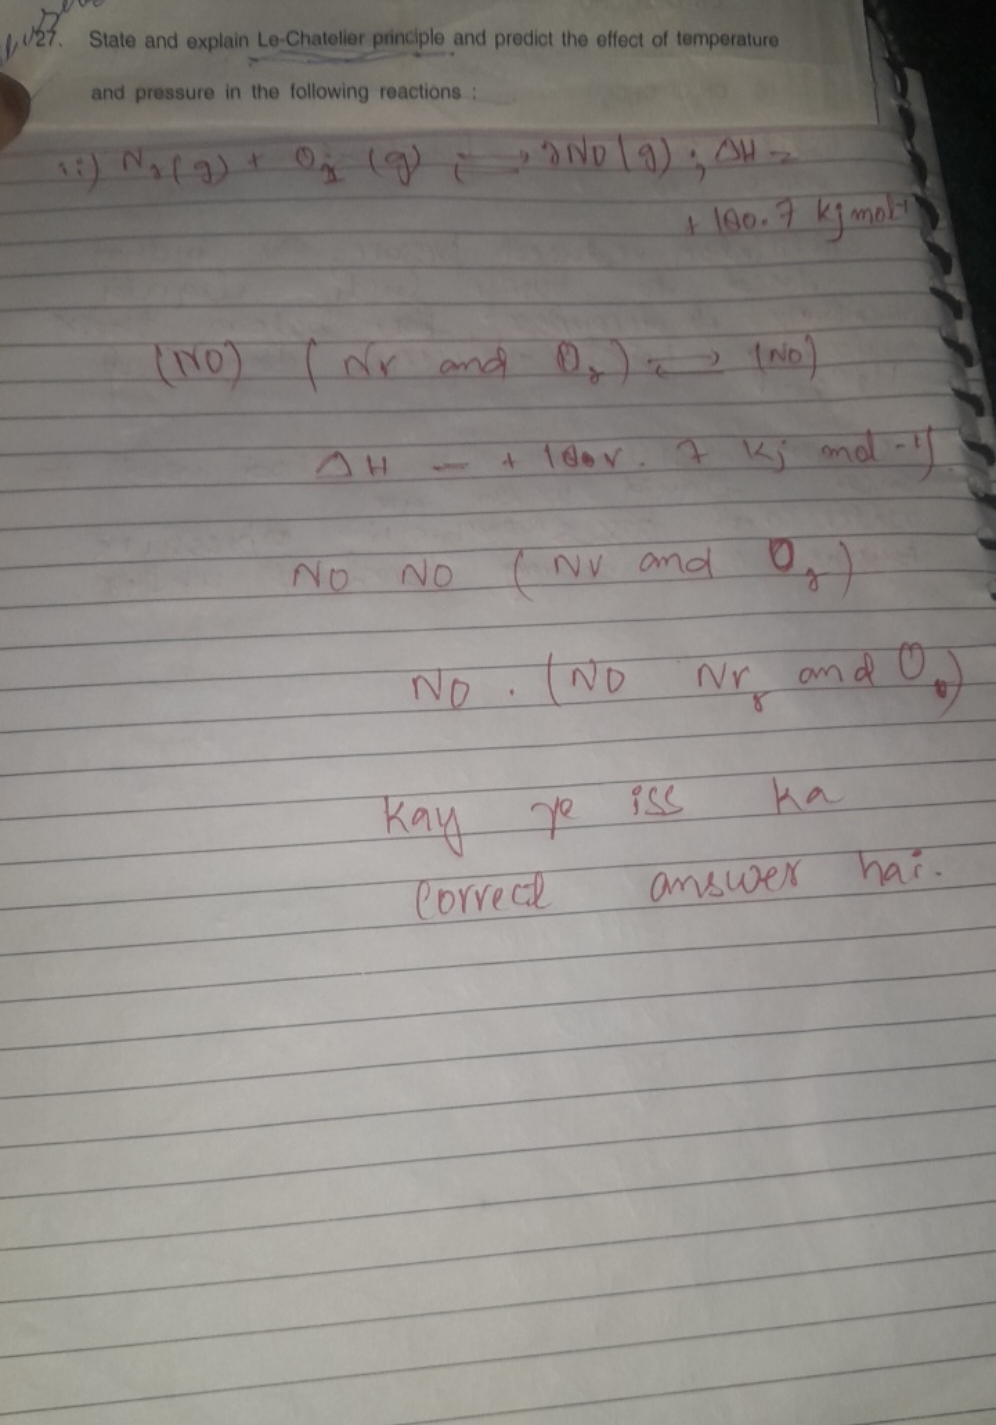 27. State and explain Le-Chatelier principle and predict the effect of temperature
and pressure in the following reactions :
ii) N2(g) + O2 (g) ⇌ 2NO(g) ; ΔH =
+ 180.7 kj mol-1
(NO) ( Nr and O2) ⇌ (NO)
ΔH – + 180r. 7 Kj mol -1)
NO NO ( Nr and O2)
NO . (NO Nr2 and O2)
Kay ye iss ka
Correct answer hai.